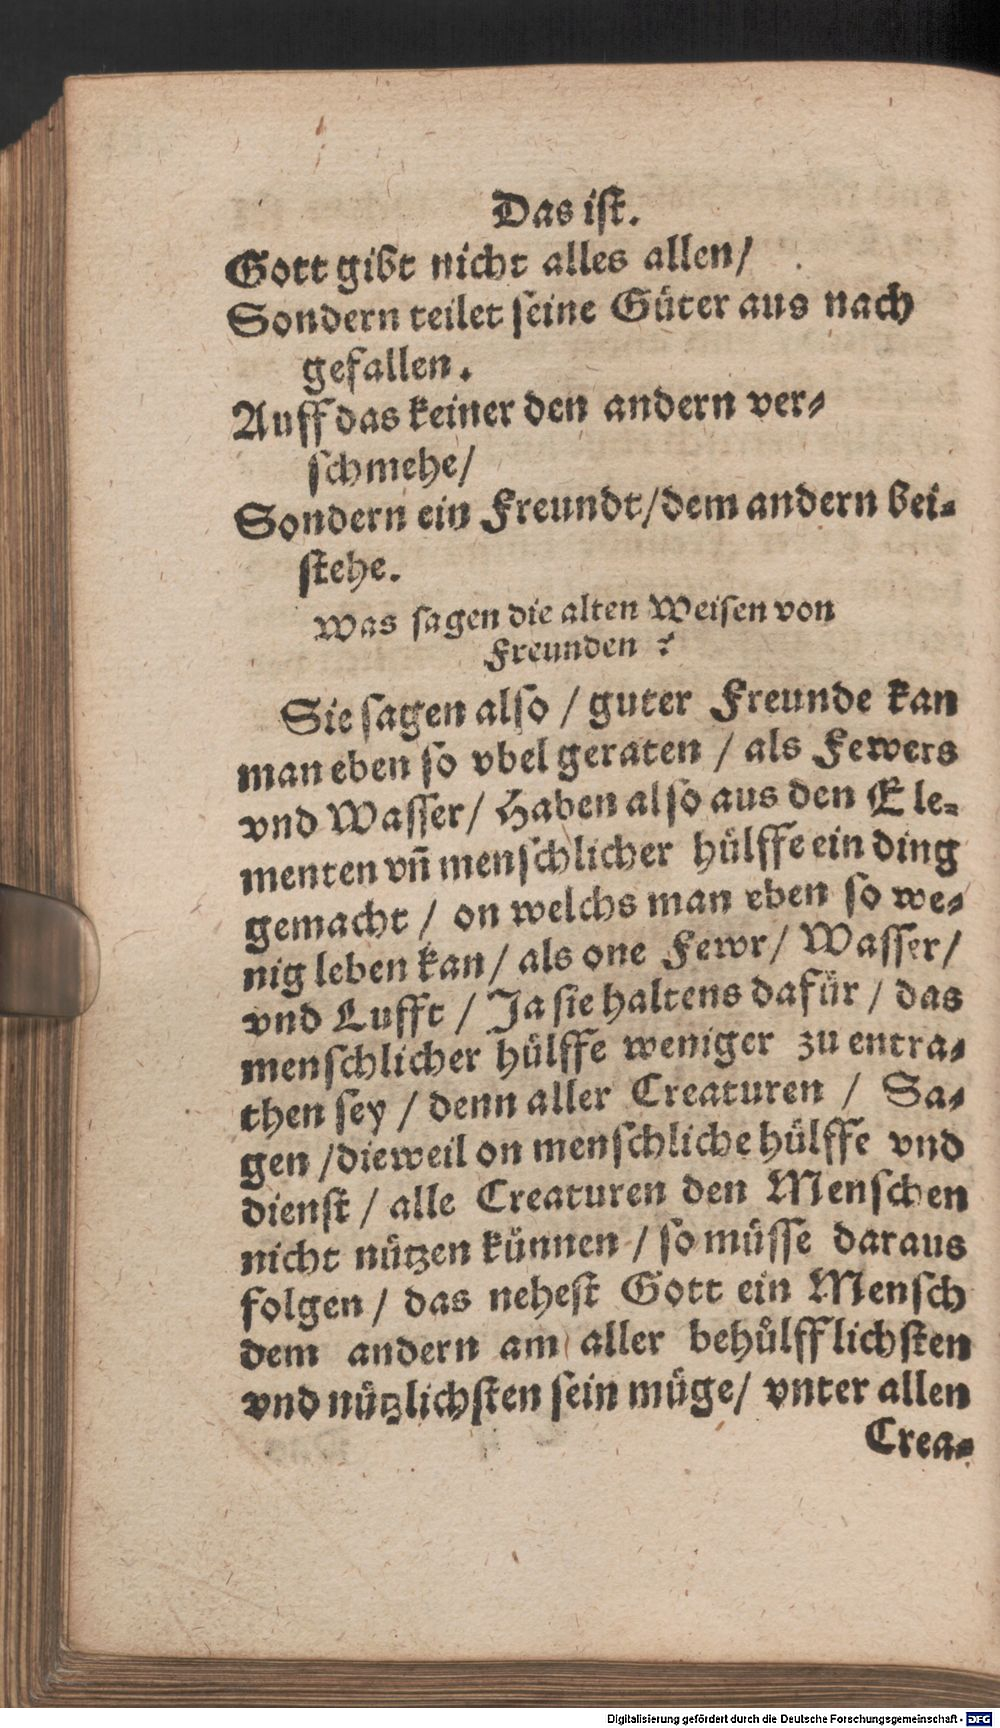 Das ist.
Gott gibt nicht alles allen/
Sondern teilet seine Güter aus nach
gefallen.
Auff das keiner den andern ver⸗
schmehe/
Sondern ein Freundt/dem andern bei⸗
stehe.
Was sagen die alten Weisen von
Freunden ?
Sie sagen also / guter Freunde kan
man eben so vbel geraten / als Fewers
vnd Wasser/ Haben also aus den Ele⸗
menten vñ menschlicher hülffe ein ding
gemacht / on welchs man eben so we⸗
nig leben kan/ als one Fewr/ Wasser/
vnd Lufft / Ja sie haltens dafür / das
menschlicher hülffe weniger zu entra⸗
then sey / denn aller Creaturen / Sa⸗
gen /dieweil on menschliche hülffe vnd
dienst / alle Creaturen den Menschen
nicht nützen künnen / so müsse daraus
folgen / das nehest Gott ein Mensch
dem andern am aller behülfflichsten
vnd nützlichsten sein müge/ vnter allen
Crea⸗
Digitalisierung gefördert durch die Deutsche Forschungsgemeinschaft - DFG